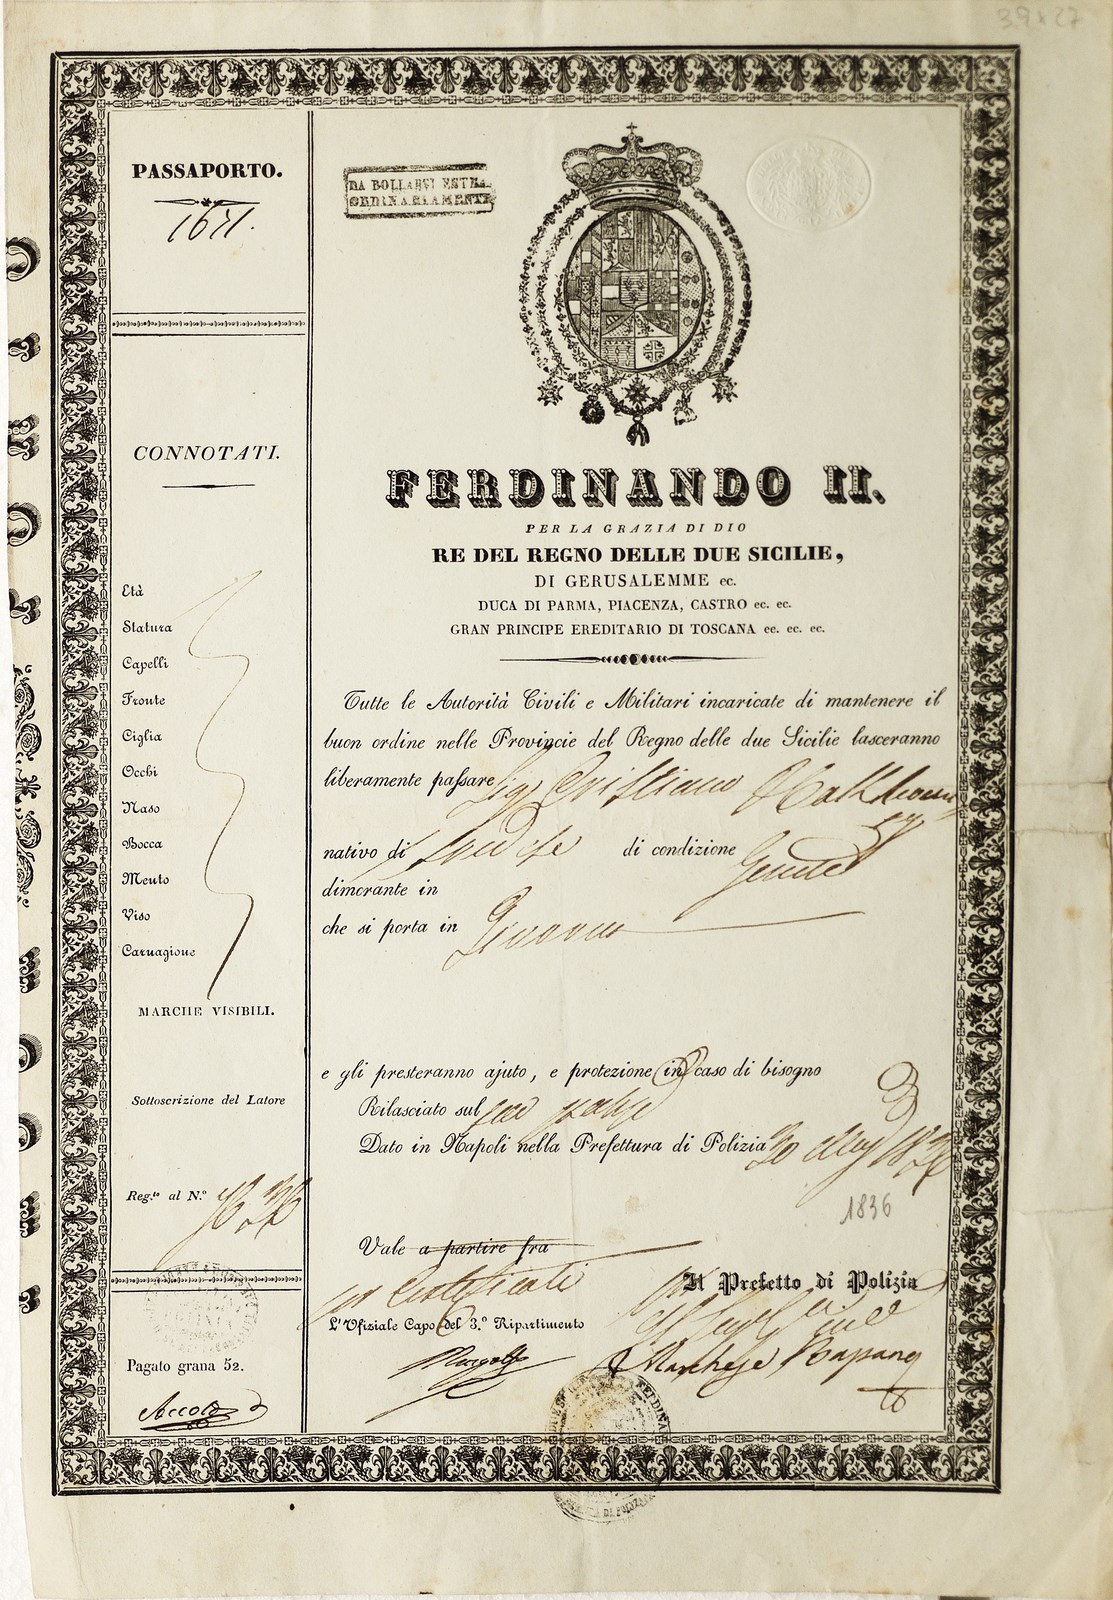 39 x 27
PASSAPORTO.
1671.
DA BOLLARSI ESTRA-
ORDINARIAMENTE
CONNOTATI.
Età
Statura
Capelli
Fronte
Ciglia
Occhi
Naso
Bocca
Mento
Viso
Carnagione
MARCHE VISIBILI.
Sottoscrizione del Latore
Reg.to al N.o
Pagato grana 52.
FERDINANDO II.
PER LA GRAZIA DI DIO
RE DEL REGNO DELLE DUE SICILIE,
DI GERUSALEMME ec.
DUCA DI PARMA, PIACENZA, CASTRO ec. ec.
GRAN PRINCIPE EREDITARIO DI TOSCANA ec. ec. ec.
Tutte le Autorità Civili e Militari incaricate di mantenere il
buon ordine nelle Provincie del Regno delle due Sicilie lasceranno
liberamente passare Sig. Cristiano
nativo di Svedese di condizione
dimorante in
che si porta in Genova
e gli presteranno ajuto, e protezione in caso di bisogno
Rilasciato sul
Dato in Napoli nella Prefettura di Polizia 30
1836
Vale a partire fra
Il Prefetto di Polizia
L'Ufiziale Capo del 3.o Ripartimento
Marchese